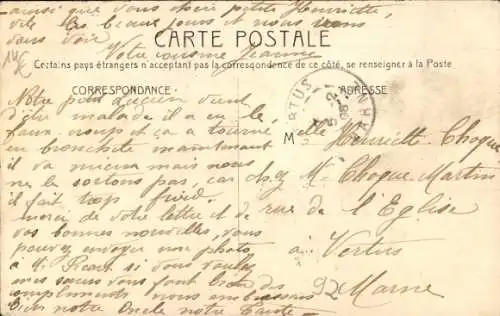 ainsi que vous chère petite Henriette,
vite les beaux jours et nous irons
vous voir
Votre cousine Jeanne
CARTE POSTALE
Certains pays étrangers n'acceptant pas la correspondance de ce côté, se renseigner à la Poste
CORRESPONDANCE
ADRESSE
VERTUS
MARNE
Notre petit Lucien vient
d'être malade il a eu le
faux croup et ça a tourné
en bronchite maintenant
il va mieux mais nous
ne le sortons pas, car
il fait trop froid.
merci de votre lettre et de
vos bonnes nouvelles, vous
pouvez envoyer une photo
à si vous voulez
mes sœurs vous font bien des
compliments nous embrassons
bien notre Oncle notre Tante
Melle Henriette Choque
chez M. Choque Martin
rue de l'Eglise
à Vertus
Marne